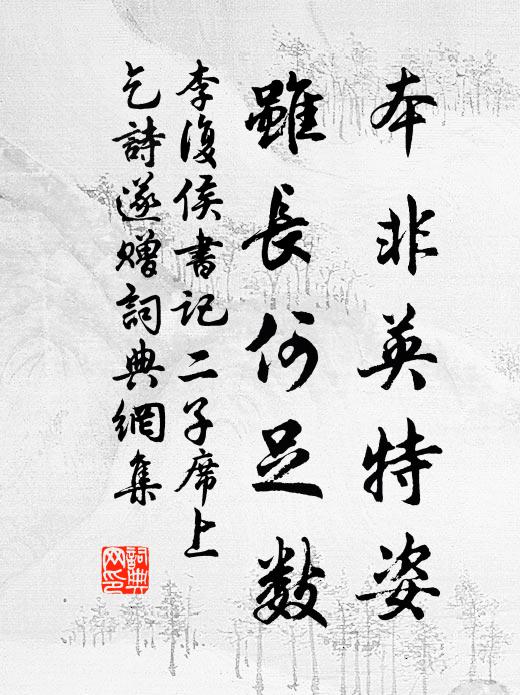 本非英特姿
雖長何足数
李復侯書記二子席上
乞詩遂贈詞典網集
詞典
网印